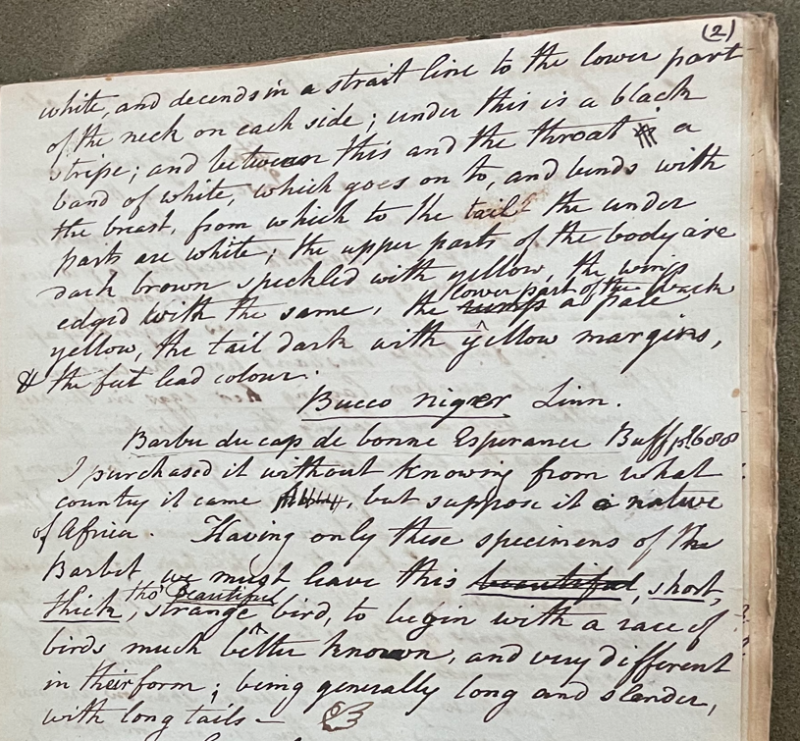 (2)
white, and decends in a strait line to the lower part
of the neck on each side; under this is a black
stripe; and between this and the throat is a
band of white, which goes on to, and bends with
the breast, from which to the tail the under
parts are white; the upper parts of the body are
dark brown speckled with yellow, the wings
lower part of the back
edged with the same, the rump a pale
yellow, the tail dark with yellow margins,
& the feet lead colour.
Bucco niger Linn.
Barbu du cap de bonne Esperance Buff pl 688
I purchased it without knowing from what
country it came, but suppose it a native
of Africa. Having only these specimens of the
Barbet, we must leave this beautiful, short,
tho' beautiful
thick, strange bird, to begin with a race of
birds much better known, and very different
in their form; being generally long and slender,
with long tails —